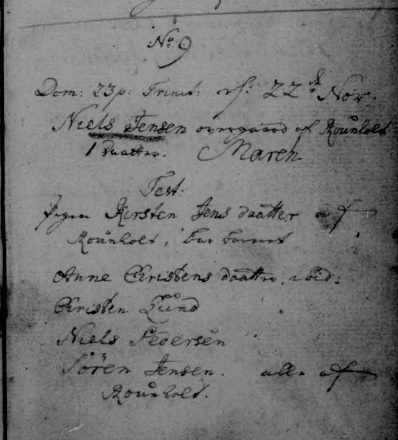 No 9
Dom: 23 p: Trinit: 22 Nov.
Niels Jensen overgaard af Rounholt
1 Daatter. Maren
Test.
Kirsten Jens daatter af
Rounholt, bar barnet
Anne Christens daatter, ibid:
Christen Lund
Niels Pedersen
Sören Jensen. alle af
Rounholt.